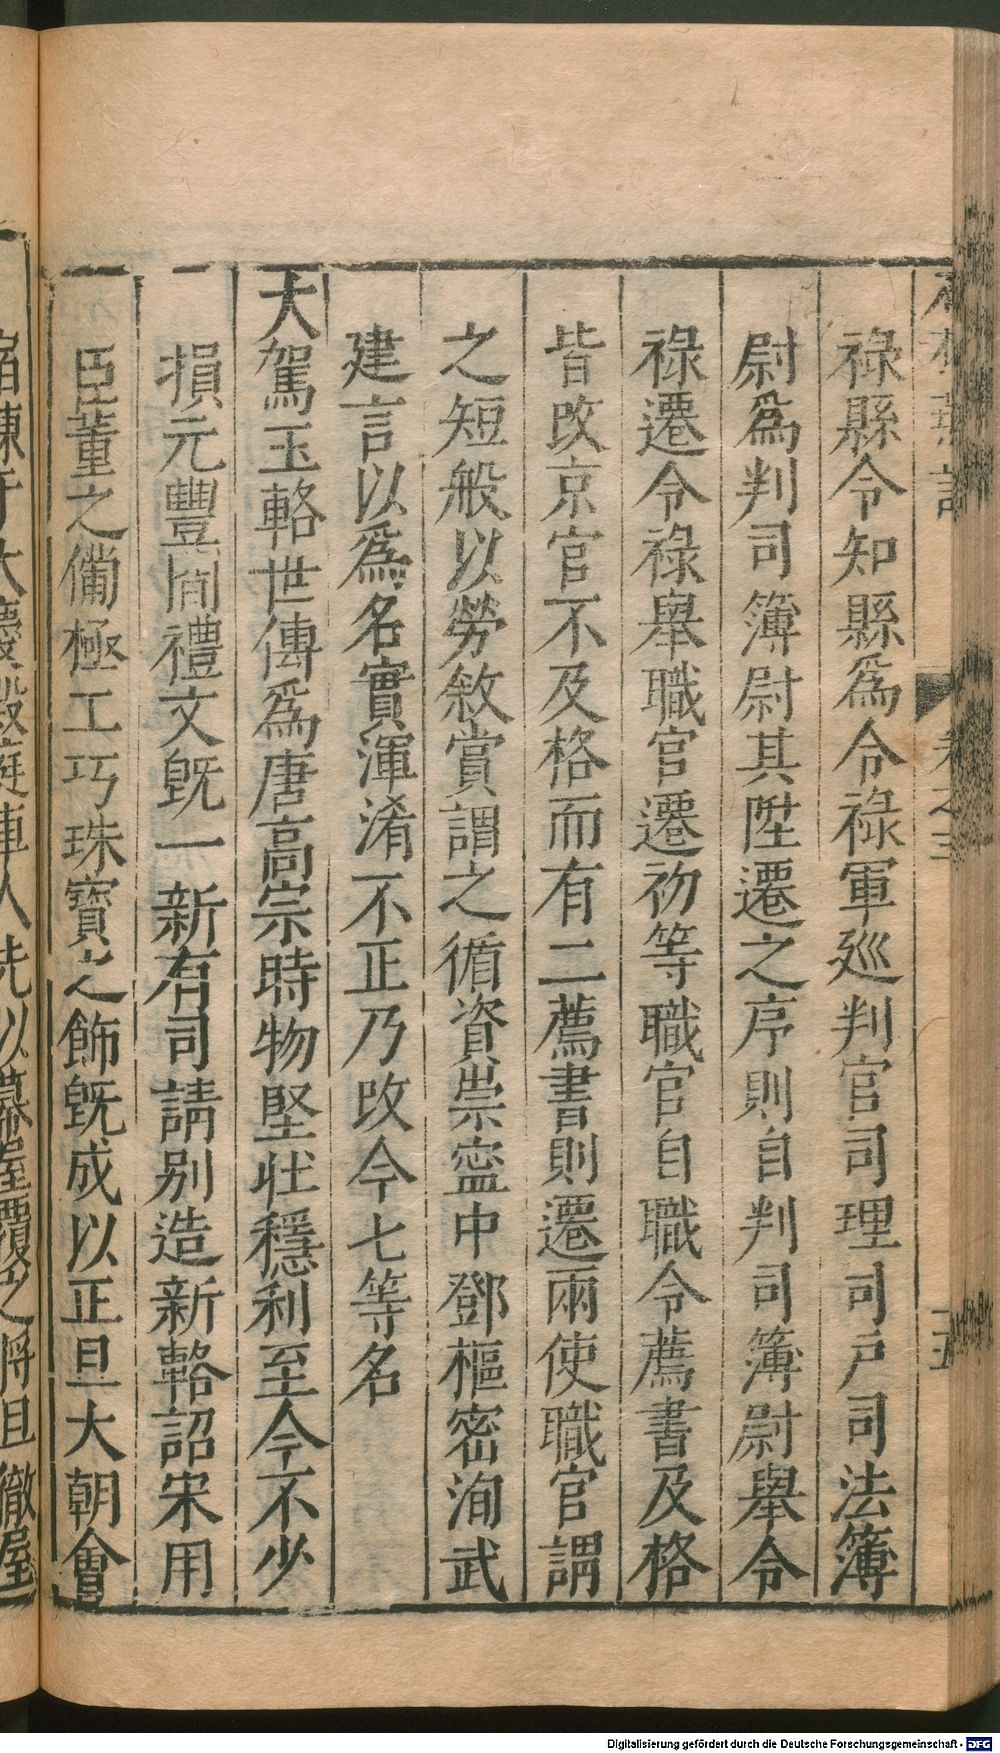 祿縣令知縣爲令祿軍廵判官司理司戶司法簿
尉爲判司簿尉其陞遷之序則自判司簿尉舉令
祿遷令祿舉職官遷初等職官自職令薦書及格
皆改京官不及格而有二薦書則遷兩使職官謂
之短般以勞敘賞謂之循資崇寍中鄧樞密洵武
建言以爲名實渾淆不正乃改今七等名
大駕玉輅世傳爲唐高宗時物堅壯穩利至今不少
損元豐間禮文旣一新有司請别造新輅詔宋用
臣董之備極工巧珠寶之飾旣成以正旦大朝會
大慶殿庭車人先以幕屋覆之將旦徹屋
Digitalisierung gefördert durch die Deutsche Forschungsgemeinschaft - DFG